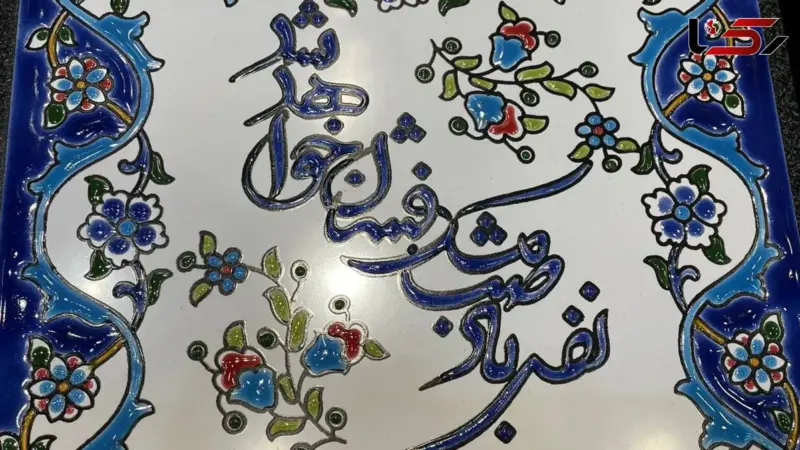 نفس باد صبا مشک فشان خواهد شد
رکنا